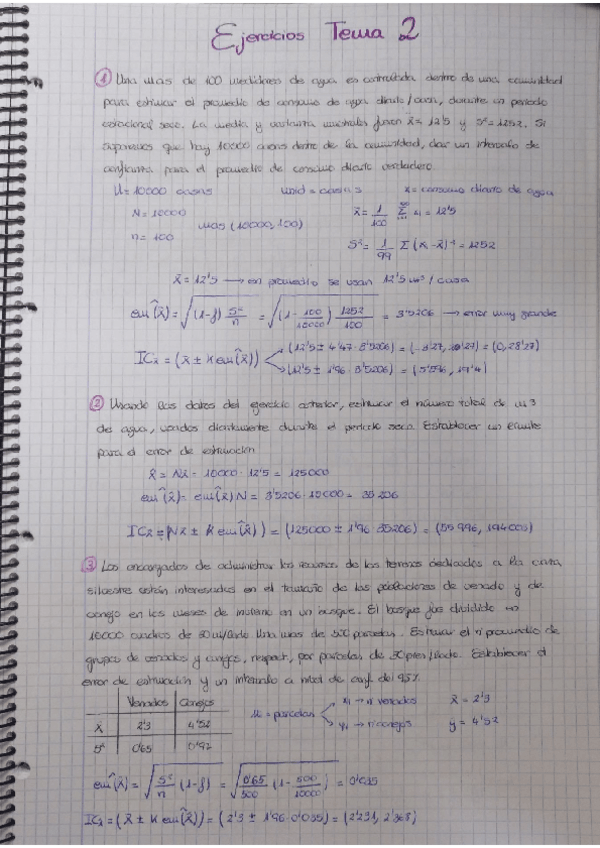 Ejercicios Tema 2
① Una mas de 100 medidores de agua es controlada dentro de una comunidad
para estimar el promedio de consumo de agua diario/casa, durante un periodo
estacional seco. La media y varianza muestrales fueron x̄= 12'5 y s²= 1252. Si
suponemos que hay 10000 casas dentro de la comunidad, dar un intervalo de
confianza para el promedio de consumo diario verdadero.
U= 10000 casas unid = casas x= consumo diario de agua
N= 10000 mas (10000, 100) x̄= 1/100 Σ xi = 12'5
n= 100 S²= 1/99 Σ(xi - x̄)² = 1252
x̄ = 12'5 → en promedio se usan 12'5 m³/casa
êm(x̄) = √((1-f) s²/n) = √((1- 100/10000) 1252/100) = 3'5206 → error muy grande
ICx̄ = (x̄ ± K êm(x̄)) (12'5 ± 4'47 · 3'5206) = (-3'27, 28'27) = (0, 28'27)
(12'5 ± 1'96 · 3'5206) = (5'596, 19'4)
② Usando los datos del ejercicio anterior, estimar el número total de m3
de agua, usados diariamente durante el periodo seco. Establecer un límite
para el error de estimación
x̂ = Nx̄ = 10000 · 12'5 = 125000
êm(x̂) = êm(x̄) N = 3'5206 · 10000 = 35206
ICx = (Nx̄ ± K êm(x̂)) = (125000 ± 1'96 · 35206) = (55996, 194003)
③ Los encargados de administrar los recursos de los terrenos dedicados a la caza
silvestre están interesados en el tamaño de las poblaciones de venado y de
conejo en los meses de invierno en un bosque. El bosque fue dividido en
10000 cuadros de Una mas de 500 parcelas. Estimar el nº promedio de
grupos de venados y conejos, respect, por parcelas de Establecer el
error de estimación y un intervalo a nivel de conf. del 95%.
Venados Conejos
x̄ 2'3 4'52
s² 0'65 0'92
U = parcelas xi → nº venados x̄ = 2'3
yi → nº conejos ȳ = 4'52
êm(x̄) = √(s²/n (1-f)) = √(0'65/500 (1- 500/10000)) = 0'035
ICx̄ = (x̄ ± K êm(x̄)) = (2'3 ± 1'96 · 0'035) = (2'231, 2'368)